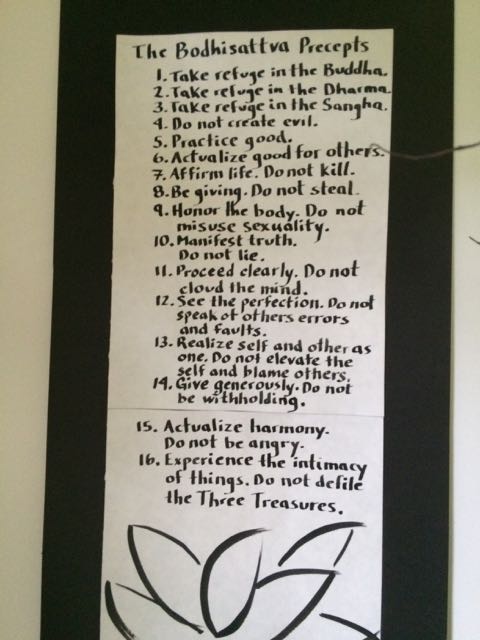 The Bodhisattva Precepts
1. Take refuge in the Buddha.
2. Take refuge in the Dharma.
3. Take refuge in the Sangha.
4. Do not create evil.
5. Practice good.
6. Actualize good for others.
7. Affirm life. Do not kill.
8. Be giving. Do not steal.
9. Honor the body. Do not
misuse sexuality.
10. Manifest truth.
Do not lie.
11. Proceed clearly. Do not
cloud the mind.
12. See the perfection. Do not
speak of others errors
and faults.
13. Realize self and other as
one. Do not elevate the
self and blame others.
14. Give generously. Do not
be withholding.
15. Actualize harmony.
Do not be angry.
16. Experience the intimacy
of things. Do not defile
the Three Treasures.